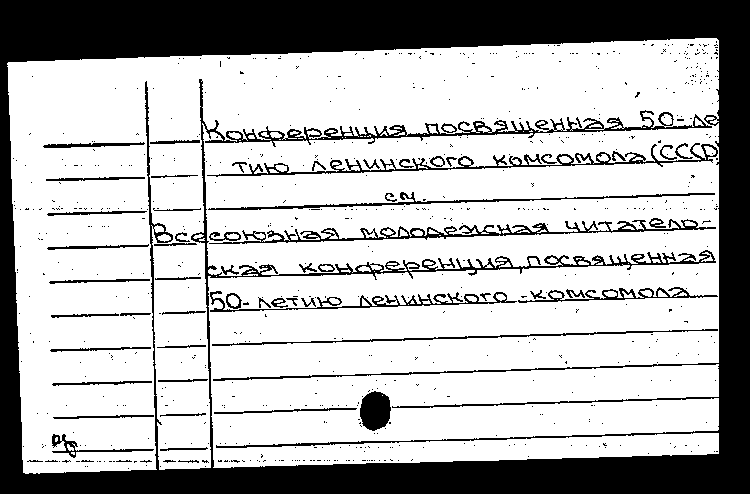 Конференция, посвященная 50-ле
тию ленинского комсомола (СССР)
см.
Всесоюзная молодежная читатель-
ская конференция, посвященная
50-летию ленинского комсомола